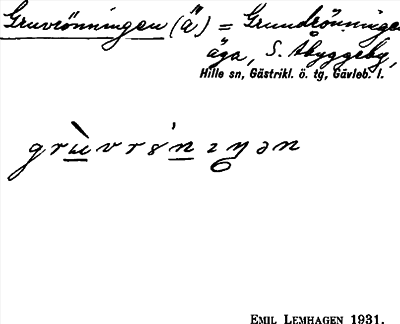 Gruvrönningen (ä) = Grundrönningen
äga, S. Åbyggeby,
Hille sn, Gästrikl. ö. tg, Gävleb. l.
grùvrönıŋən
EMIL LEMHAGEN 1931.